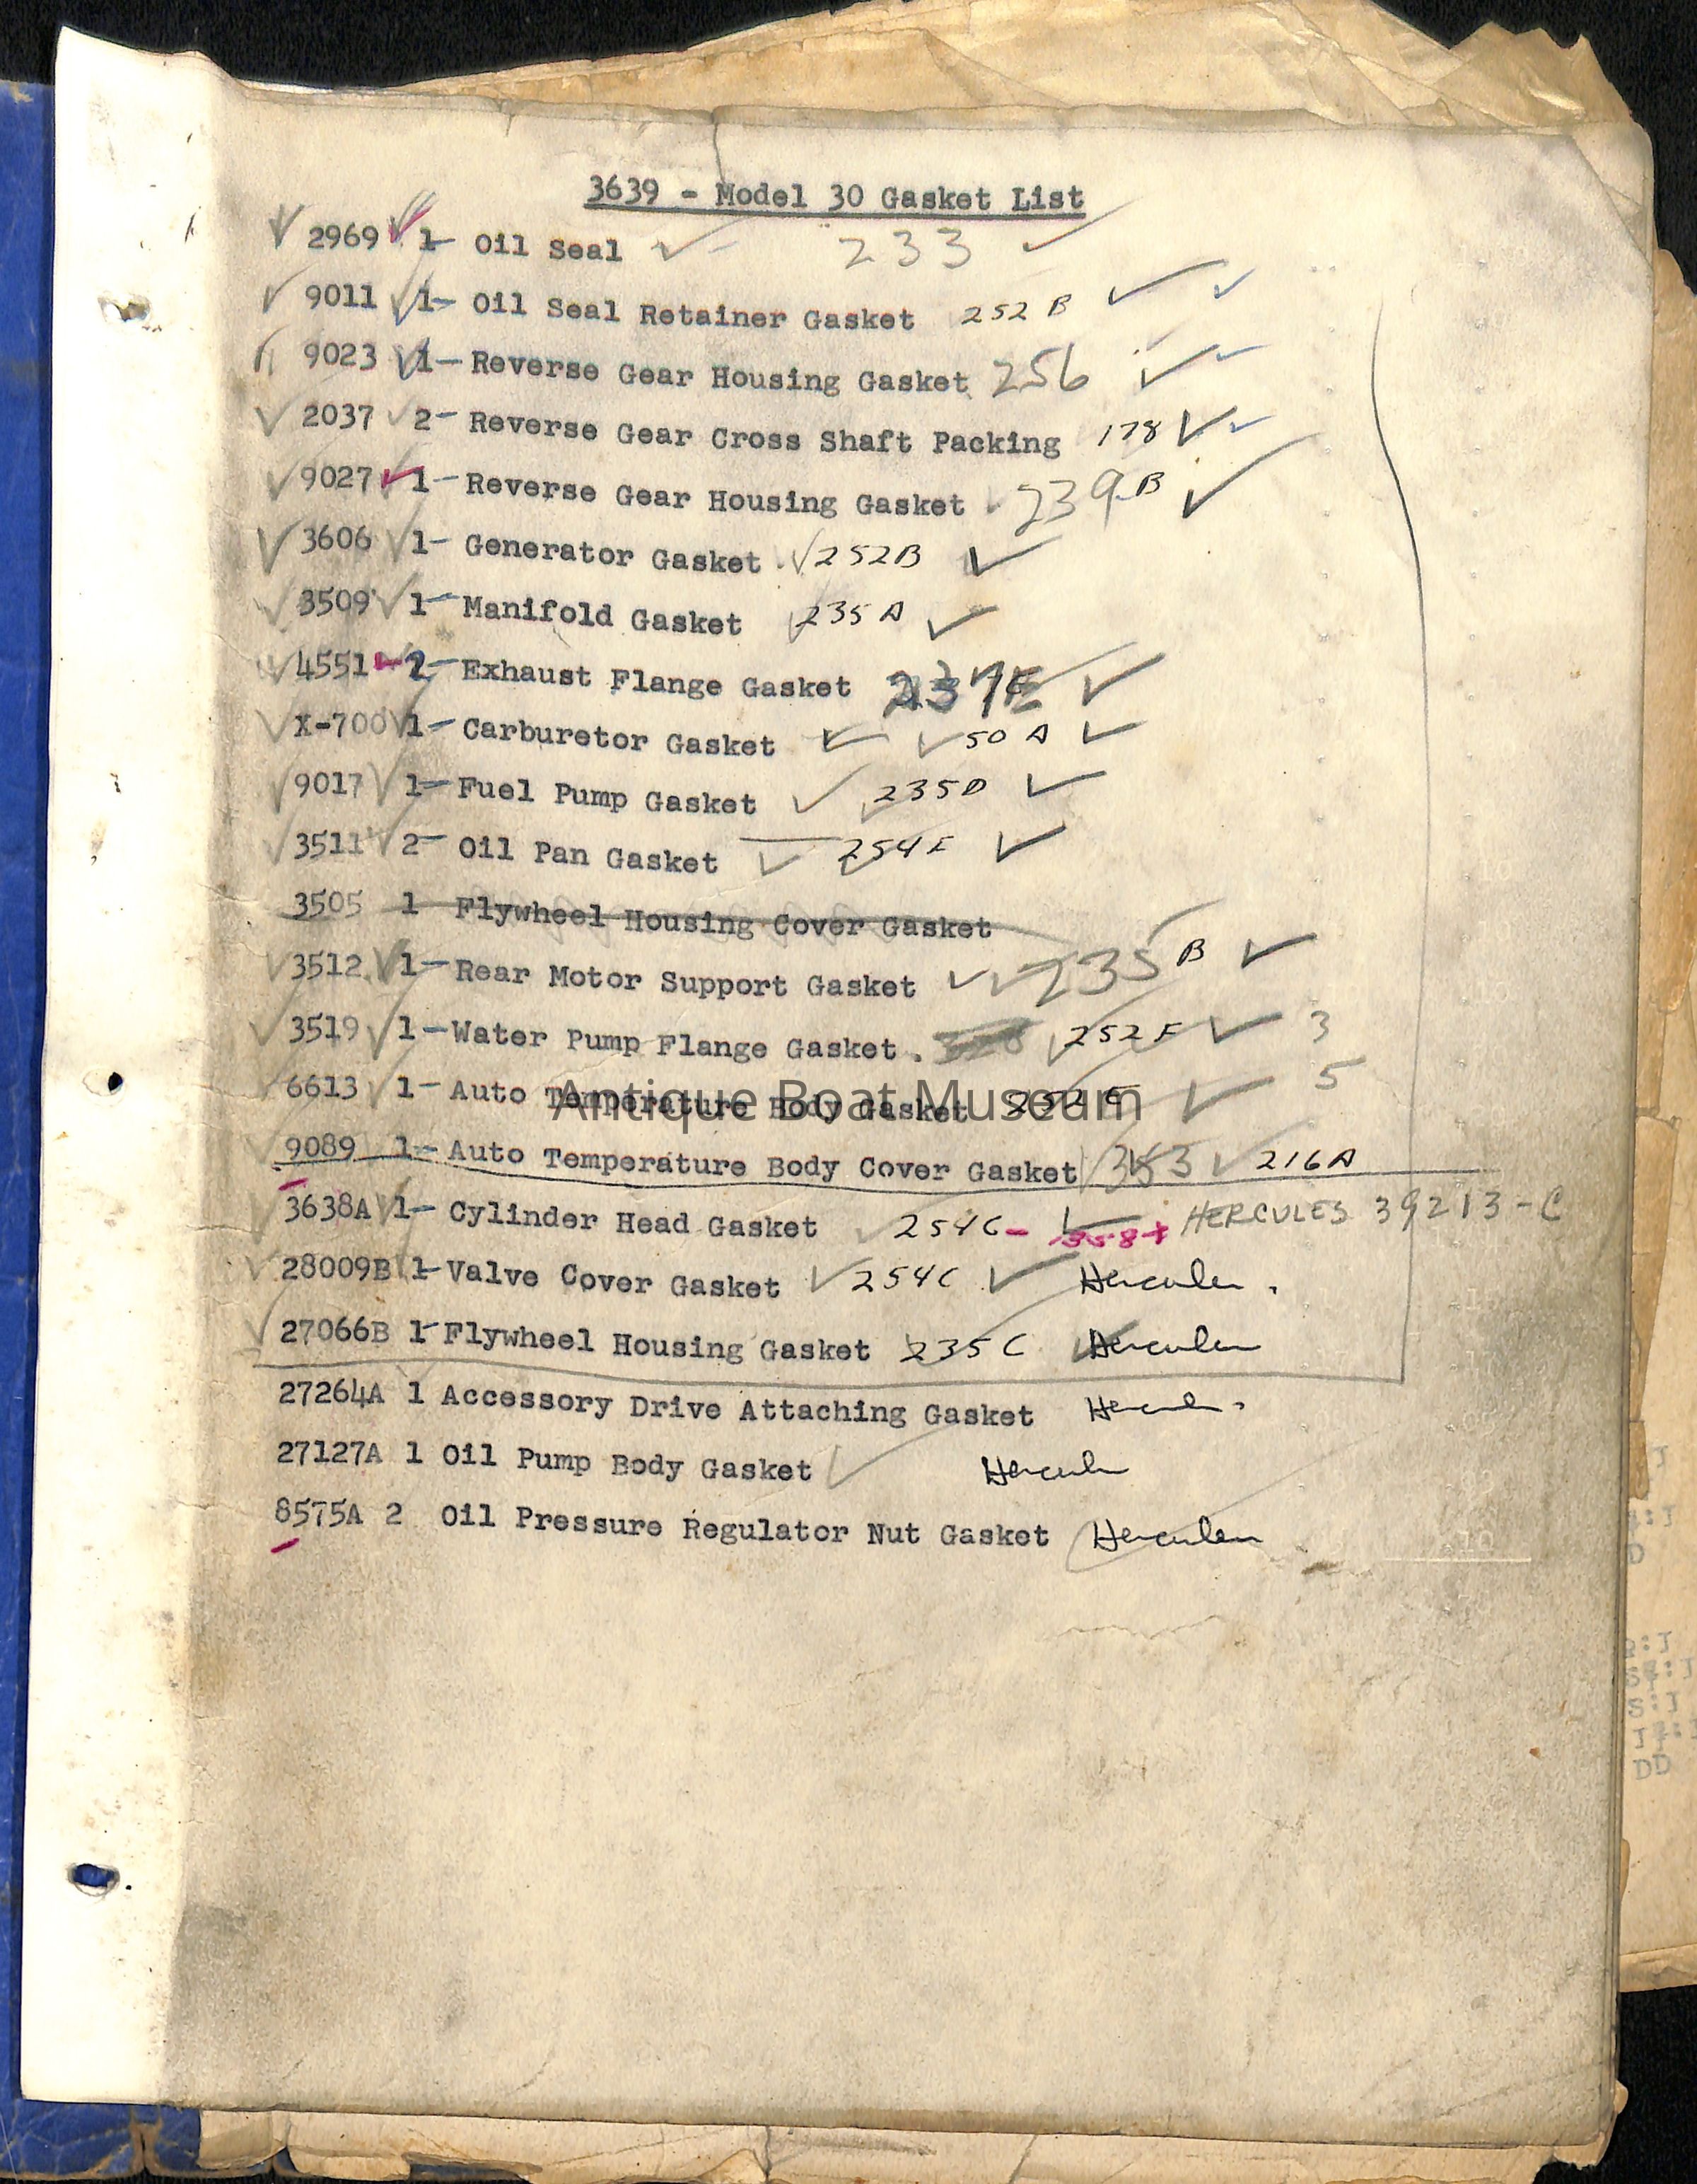 3639 - Model 30 Gasket List
✓ 2969 ✓ 1- Oil Seal ✓ - 233 ✓
✓ 9011 ✓ 1- Oil Seal Retainer Gasket 252 B ✓ ✓
9023 ✓ 1- Reverse Gear Housing Gasket 256 ✓ ✓
✓ 2037 ✓ 2- Reverse Gear Cross Shaft Packing 178 ✓ ✓
✓ 9027 ✓ 1- Reverse Gear Housing Gasket ✓ 239 B ✓
✓ 3606 ✓ 1- Generator Gasket ✓ 252B ✓
✓ 3509 ✓ 1- Manifold Gasket 235 A ✓
✓ 4551 ✓ 2- Exhaust Flange Gasket ✓
✓ X-700 ✓ 1- Carburetor Gasket ✓ ✓ 50 A ✓
✓ 9017 ✓ 1- Fuel Pump Gasket ✓ 235D ✓
✓ 3511 ✓ 2- Oil Pan Gasket ✓ 254E ✓
3505 1 Flywheel Housing Cover Gasket
✓ 3512 ✓ 1- Rear Motor Support Gasket ✓ ✓ 235 B ✓
✓ 3519 ✓ 1- Water Pump Flange Gasket. ✓ 252 F ✓ 3
✓ 6613 ✓ 1- Auto Temperature Body Gasket 252 E ✓ 5
Antique Boat Museum
✓ 9089 1- Auto Temperature Body Cover Gasket ✓ 216A
✓ 3638A ✓ 1- Cylinder Head Gasket ✓ 254C - ✓ 358+ HERCULES 39213-C
✓ 28009B 1- Valve Cover Gasket ✓ 254C ✓ Hercules.
✓ 27066B 1- Flywheel Housing Gasket 235 C ✓ Hercules
27264A 1 Accessory Drive Attaching Gasket Hercules
27127A 1 Oil Pump Body Gasket ✓ Hercules
8575A 2 Oil Pressure Regulator Nut Gasket Hercules
DD